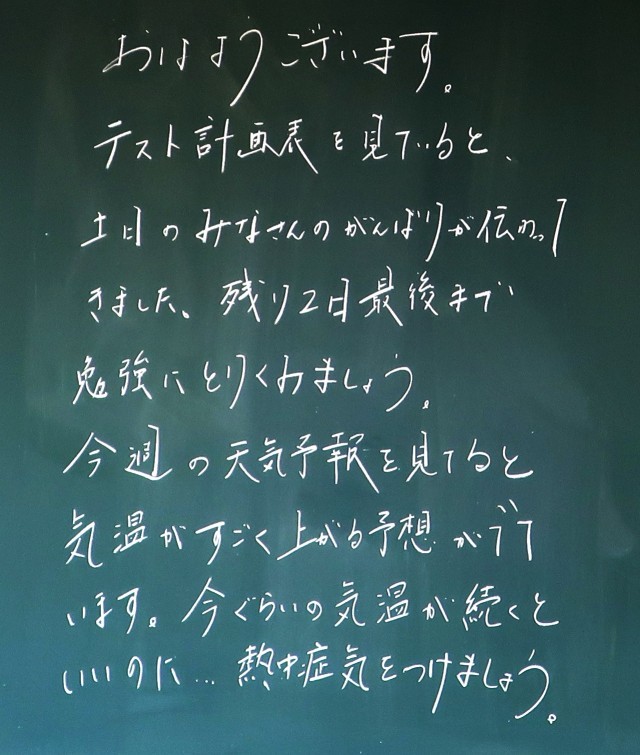 おはようございます。
テスト計画表を見ていると、
土日のみなさんのがんばりが伝わって
きました。残り2日最後まで
勉強にとりくみましょう。
今週の天気予報を見てると
気温がすごく上がる予想がでて
います。今ぐらいの気温が続くと
いいのに…熱中症気をつけましょう。